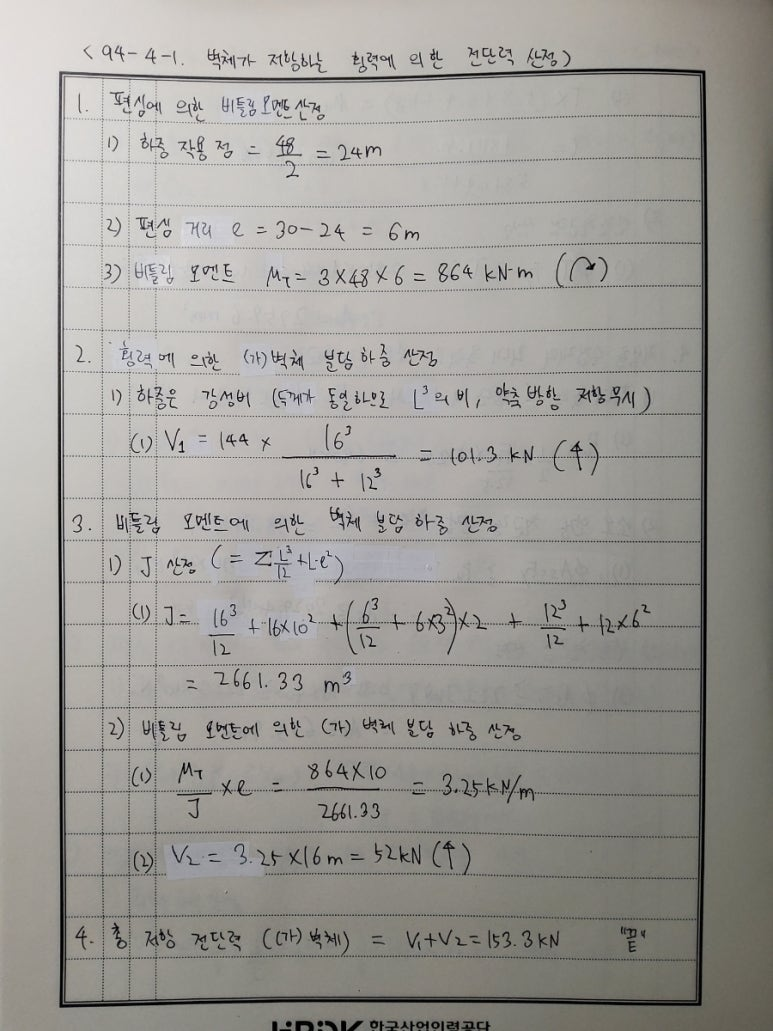 <94-4-1. 벽체가 저항하는 횡력에 의한 전단력 산정>
1. 편심에 의한 비틀림모멘트산정
1) 하중 작용점 = 48/2 = 24m
2) 편심 거리 e = 30-24 = 6m
3) 비틀림 모멘트 M_T = 3×48×6 = 864 kN·m (↷)
2. 횡력에 의한 (가)벽체 분담하중 산정
1) 하중은 강성비 (두께가 동일하므로 L³의 비, 약축방향 저항무시)
(1) V₁ = 144 × 16³/(16³ + 12³) = 101.3 kN (↑)
3. 비틀림 모멘트에 의한 벽체 분담하중 산정
1) J 산정 (= Σ L³/12 + L·e²)
(1) J = 16³/12 + 16×10² + (6³/12 + 6×3²)×2 + 12³/12 + 12×6²
= 2661.33 m³
2) 비틀림 모멘트에 의한 (가) 벽체 분담 하중 산정
(1) M_T/J × e = 864×10/2661.33 = 3.25kN/m
(2) V₂ = 3.25×16m = 52kN (↑)
4. 총 저항 전단력 ((가)벽체) = V₁+V₂ = 153.3kN "끝"
한국산업인력공단